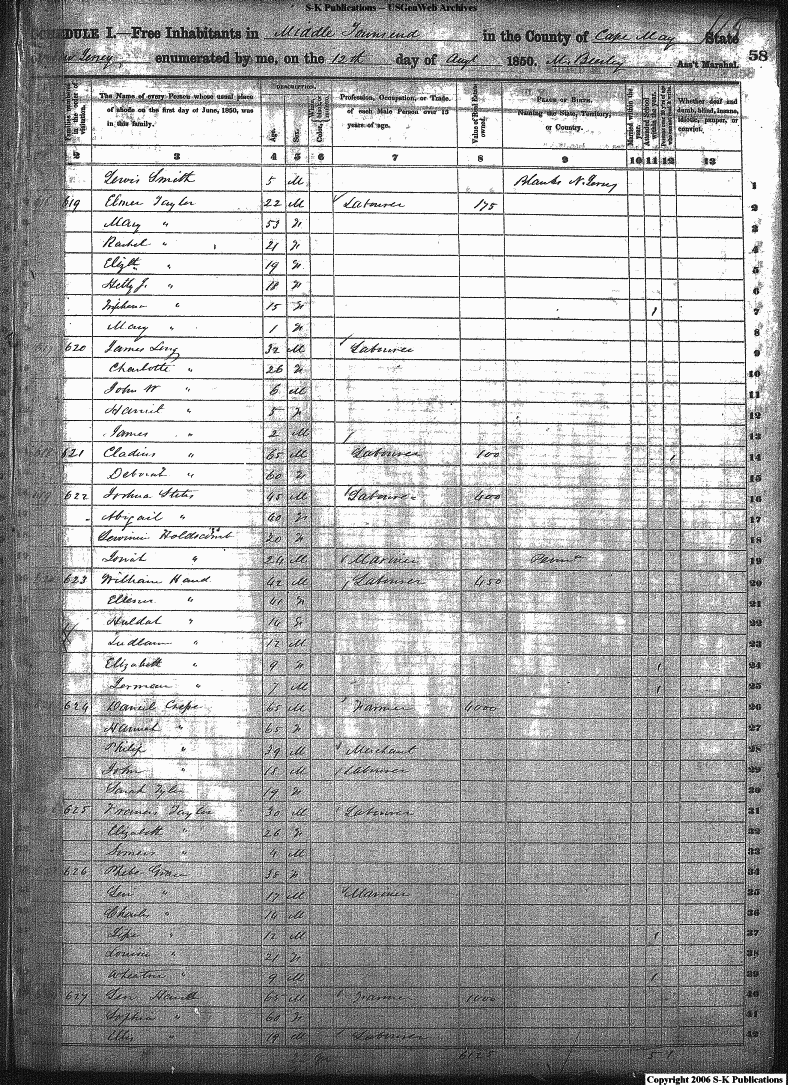 S-K Publications – USGenWeb Archives
SCHEDULE I.—Free Inhabitants in Middle Townsend in the County of Cape May State
of New Jersey enumerated by me, on the 12th day of Augt 1850. Ass't Marshal. 58
DESCRIPTION.
The Name of every Person whose usual place of abode on the first day of June, 1850, was in this family.
Age.
Sex.
Profession, Occupation, or Trade of each Male Person over 15 years of age.
Value of Real Estate owned.
PLACE OF BIRTH. Naming the State, Territory, or Country.
Married within the year.
Whether deaf and dumb, blind, insane, idiotic, pauper, or convict.
2 3 4 5 6 7 8 9 10 11 12 13
Lewis Smith 5 M Blanks N. Jersey 1
619 Elmer Taylor 22 M Labourer 175 2
Mary " 53 F 3
Rachel " 21 F 4
Elizth " 19 F 5
Hetty J. " 18 F 6
15 F 1 7
Mary " 1 F 8
620 James 32 M Labourer 9
Charlotte " 26 F 10
John W " 6 M 11
Harriet " 5 F 12
James " 2 M 13
621 Cladius " 65 M Labourer 100 1 14
Deborah " 60 F 15
622 Joshua Stites 45 M Labourer 400 16
Abigail " 40 F 17
Holdscomb 20 F 18
Josiah " 24 M Mariner Penn 19
623 William Hand 42 M Labourer 450 20
Ellenor " 41 F 21
Huldah " 14 F 22
Ludlam " 12 M 23
Elizabeth " 9 F 1 24
" 7 M 1 25
624 Daniel 65 M Farmer 4000 26
Hannah " 65 F 27
Philip " 39 M Merchant 28
John " 18 M Labourer 29
Sarah Tyler 19 F 30
625 Francis Taylor 30 M Labourer 31
Elizabeth " 26 F 32
Somers " 4 M 33
626 Phebe Grace 38 F 34
" 17 M Mariner 35
Charles " 14 M 36
" 12 M 1 37
Louisa " 21 F 38
Wheaton " 9 M 1 39
627 65 M Farmer 1000 40
Sophia " 60 F 41
Ellis " 19 M Labourer 42
6125 5 1
Copyright 2006 S-K Publications